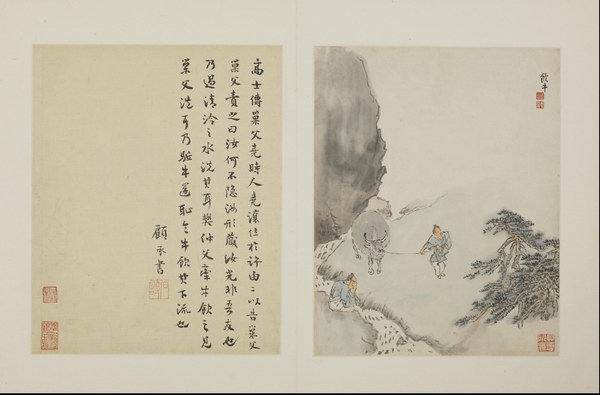 飲牛
高士傳巢父堯時人堯讓位於許由〻以告巢父
巢父責之曰汝何不隱汝形藏汝光非吾友也
乃過清泠之水洗其耳樊仲父牽牛飲之見
巢父洗耳乃驅牛還恥令牛飲其下流也
顧承書